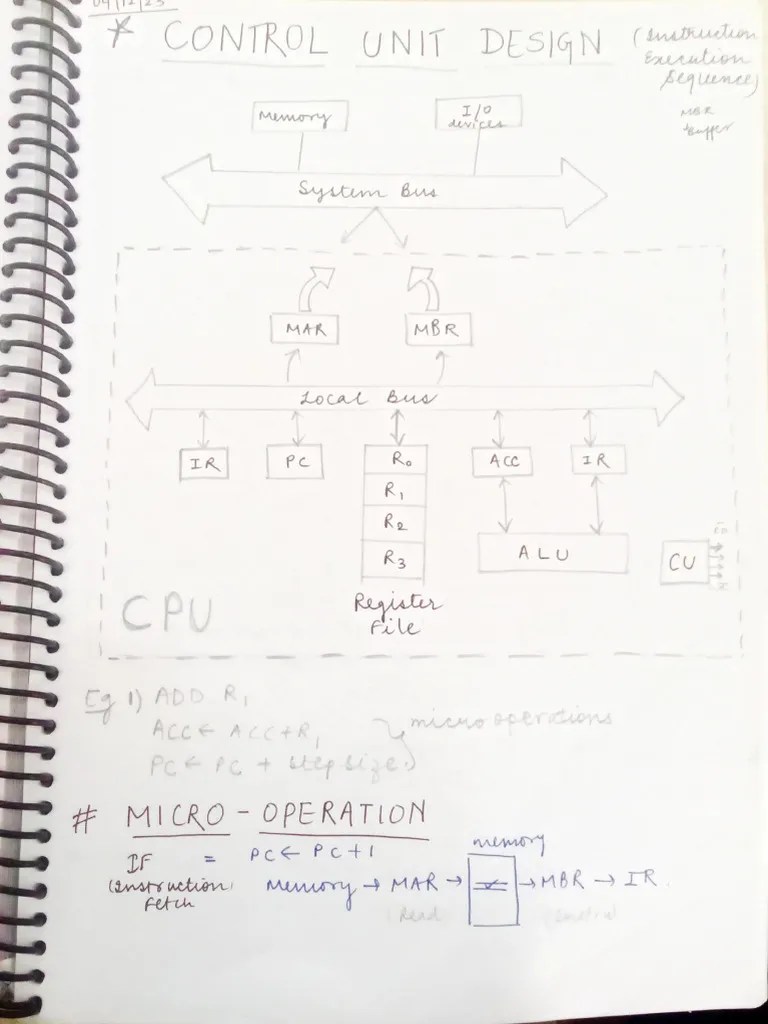 04/12/23
* CONTROL UNIT DESIGN (Instruction
Execution
Sequence)
MBR
Buffer
Memory
I/O
devices
System Bus
MAR
MBR
Local Bus
IR
PC
R0
ACC
IR
R1
R2
R3
ALU
CU
CPU
Register
File
Eg 1) ADD R1
ACC ← ACC + R1
micro operations
PC ← PC + step size
# MICRO-OPERATION
memory
IF = PC ← PC + 1
(Instruction
Fetch
Memory → MAR → → MBR → IR.
(Read